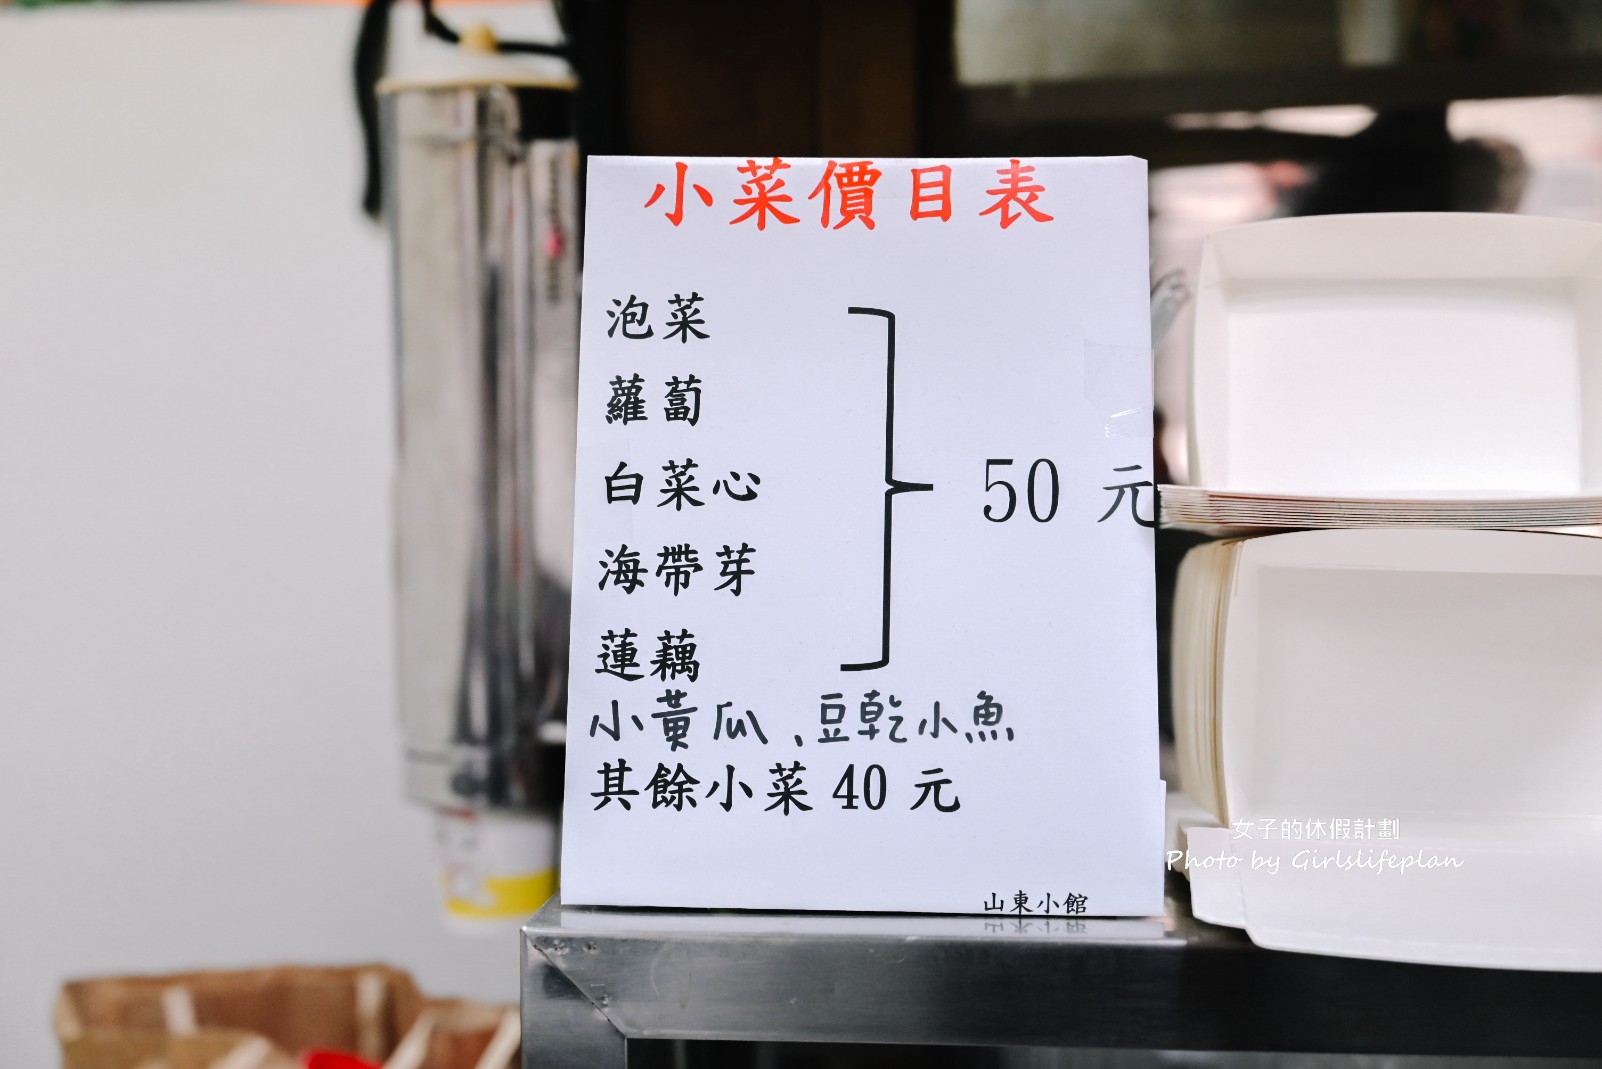 小菜價目表
泡菜
蘿蔔
白菜心
海帶芽
蓮藕
50 元
小黃瓜、豆乾小魚
其餘小菜 40 元
山東小館
女子的休假計劃
Photo by Girlslifeplan